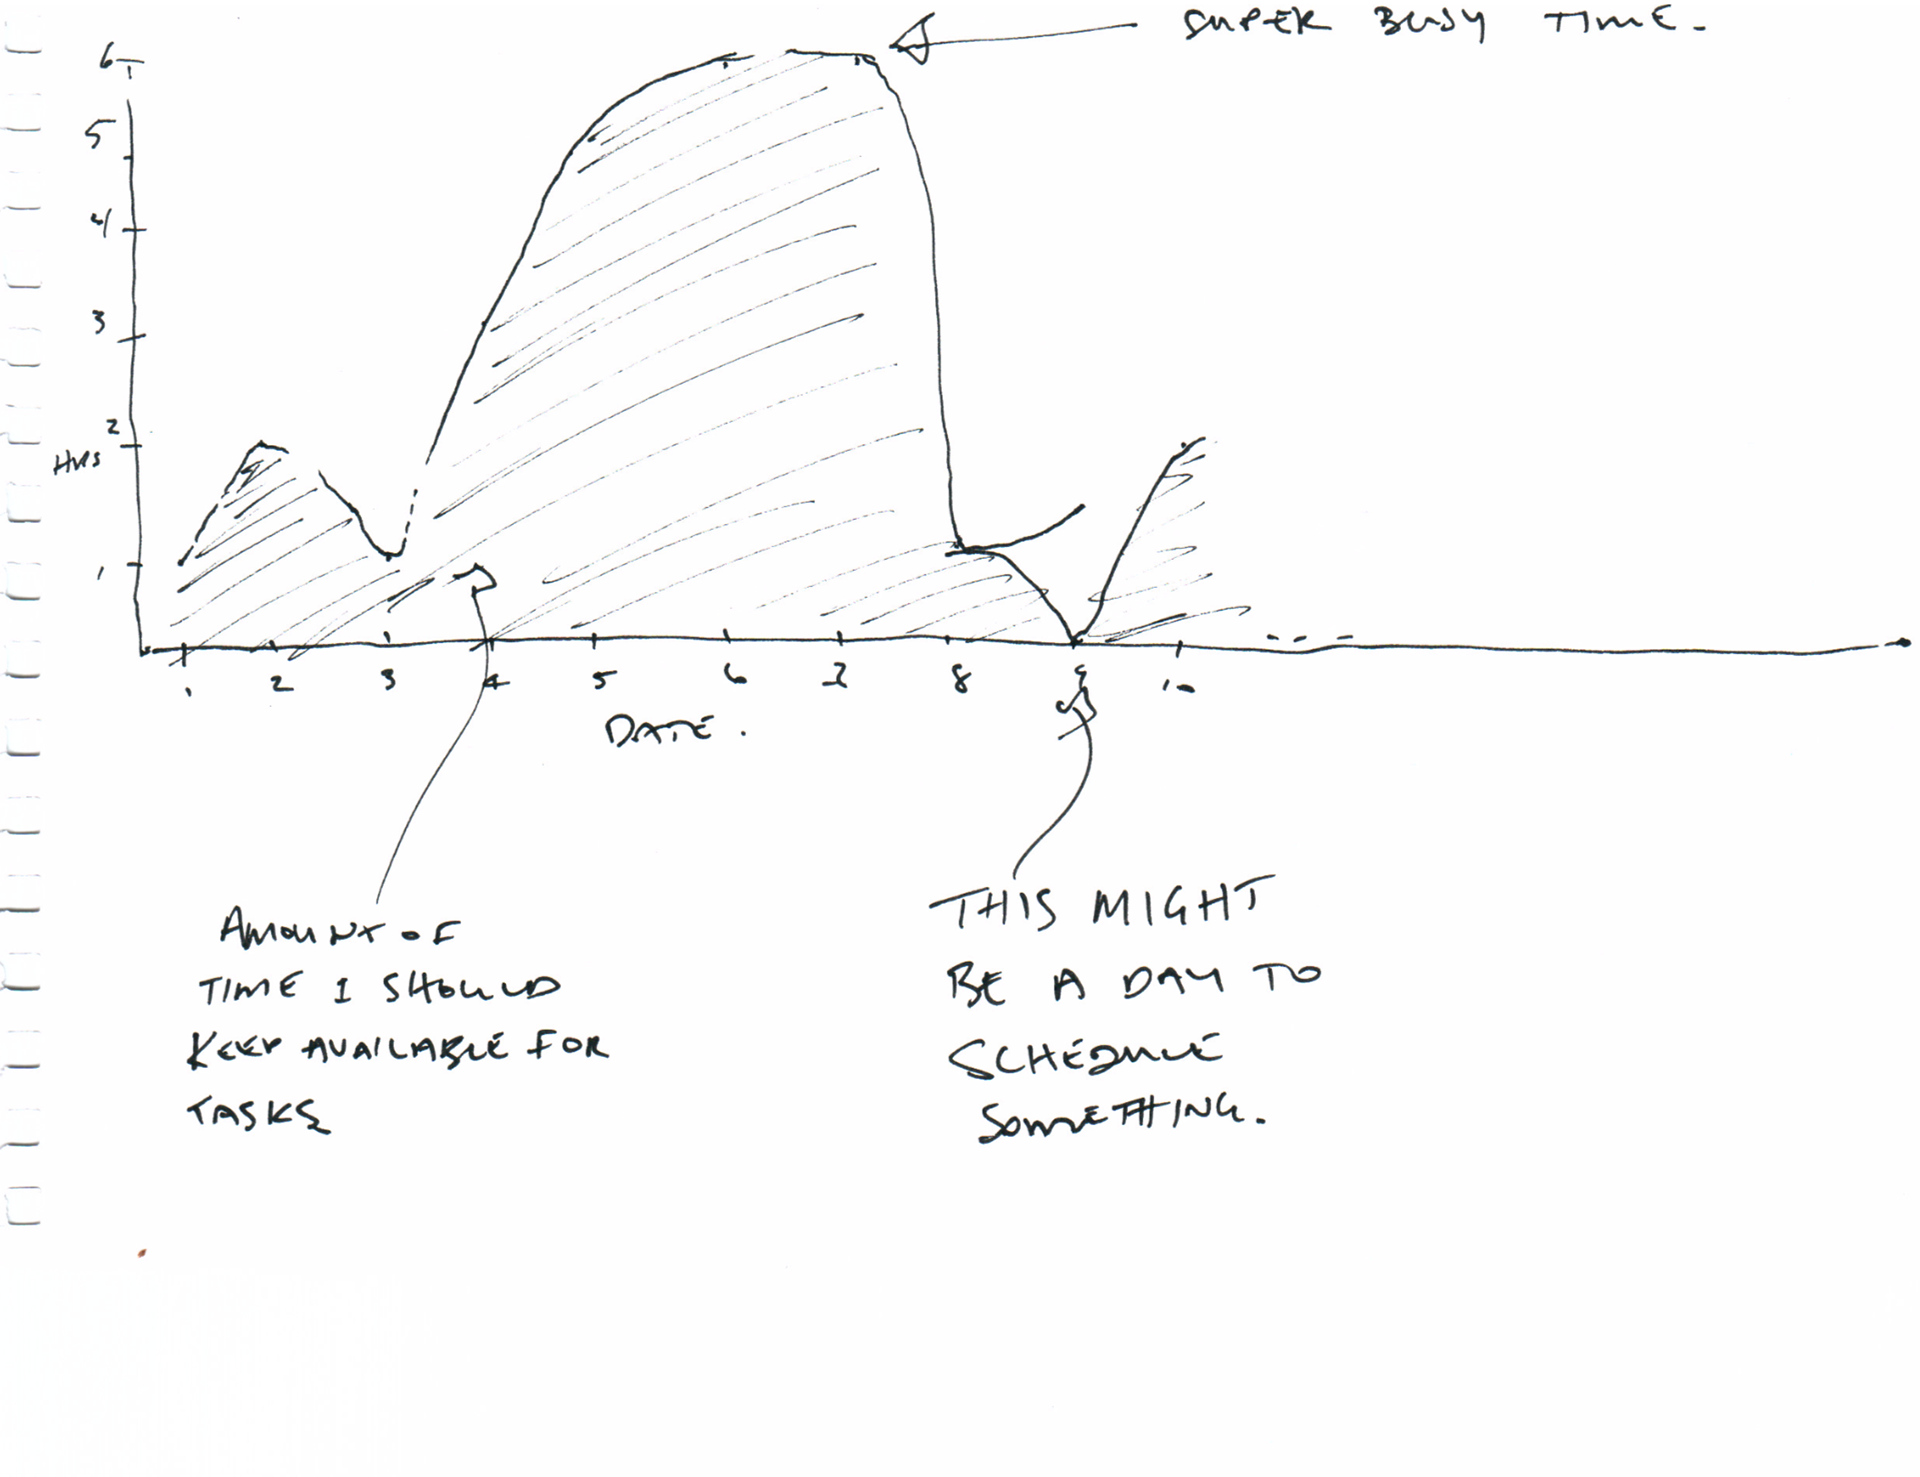 SUPER BUSY TIME.
6
5
4
3
2
HRS
1
1 2 3 4 5 6 7 8 9 10
DATE.
AMOUNT OF
TIME I SHOULD
KEEP AVAILABLE FOR
TASKS
THIS MIGHT
BE A DAY TO
SCHEDULE
SOMETHING.